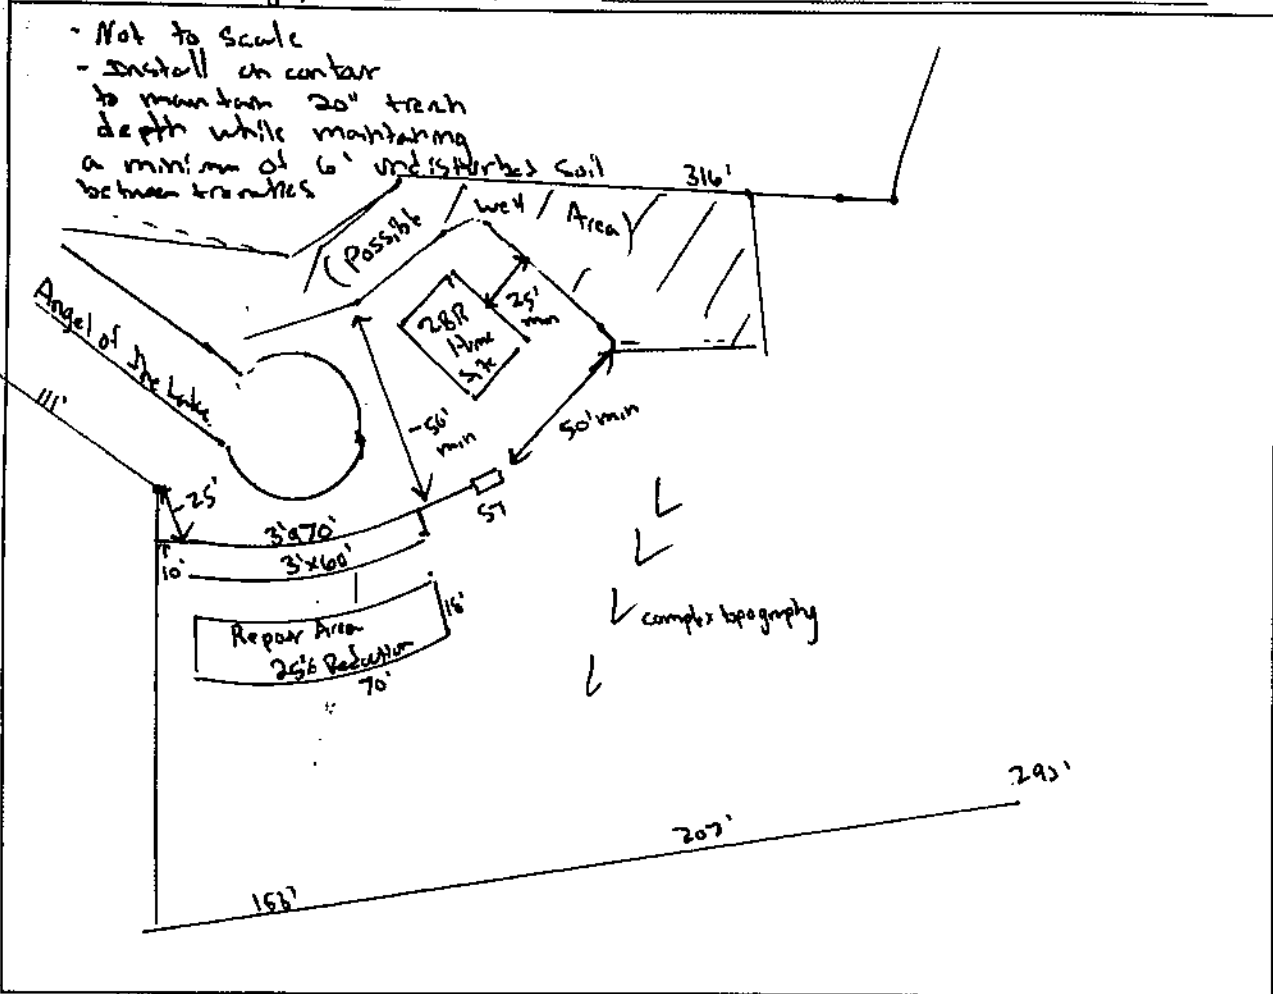 - Not to scale
- Install on contour
to maintain 20" trench
depth while maintaining
a minimum of 6' undisturbed soil
between trenches
316'
(Possible Well Area)
Angel of the Lake
111'
2BR
Home
Site
25'
min
50'
min
50' min
ST
25'
3'x70'
3'x60'
10'
Repair Area
25% Reduction
18'
70'
complex topography
207'